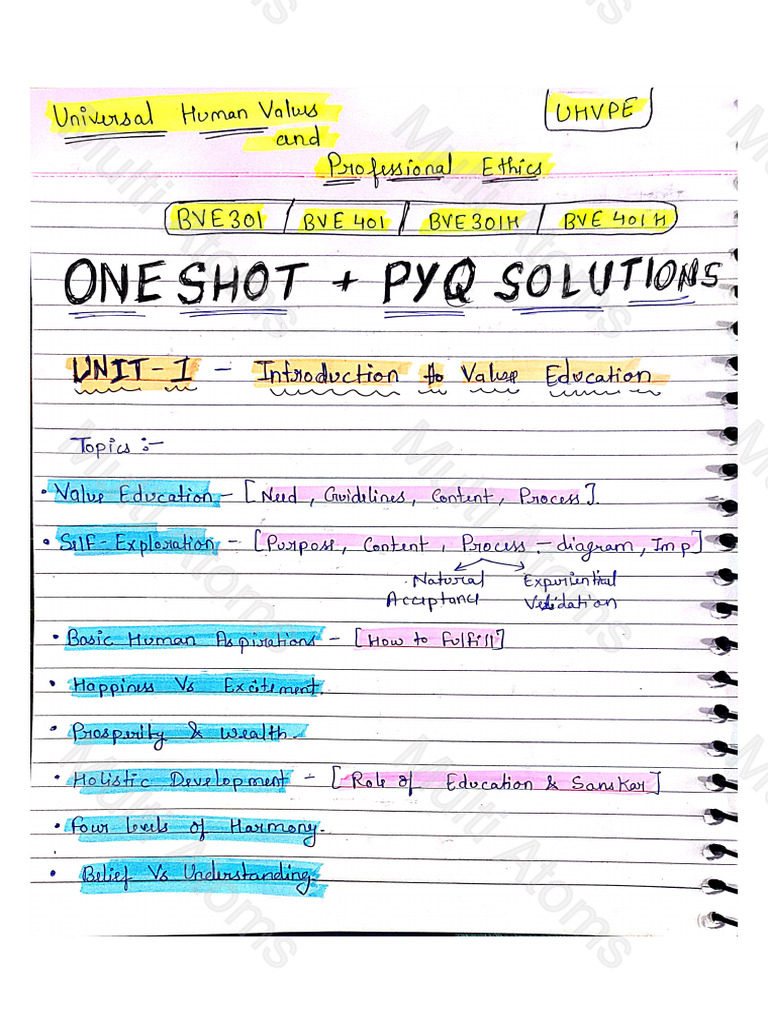 Universal Human Values
UHVPE
and
Professional Ethics
BVE301 / BVE 401 / BVE301H / BVE 401H
ONE SHOT + PYQ SOLUTIONS
UNIT-I - Introduction to Value Education
Topics :-
• Value Education - [Need, Guidelines, Content, Process].
• Self-Exploration - [Purpose, Content, Process - diagram, Imp]
Natural Experiential
Acceptance Validation
• Basic Human Aspirations - [How to Fulfill]
• Happiness Vs Excitement.
• Prosperity & Wealth.
• Holistic Development - [Role of Education & Sanskar]
• Four levels of Harmony.
• Belief Vs Understanding.
Multi Atoms